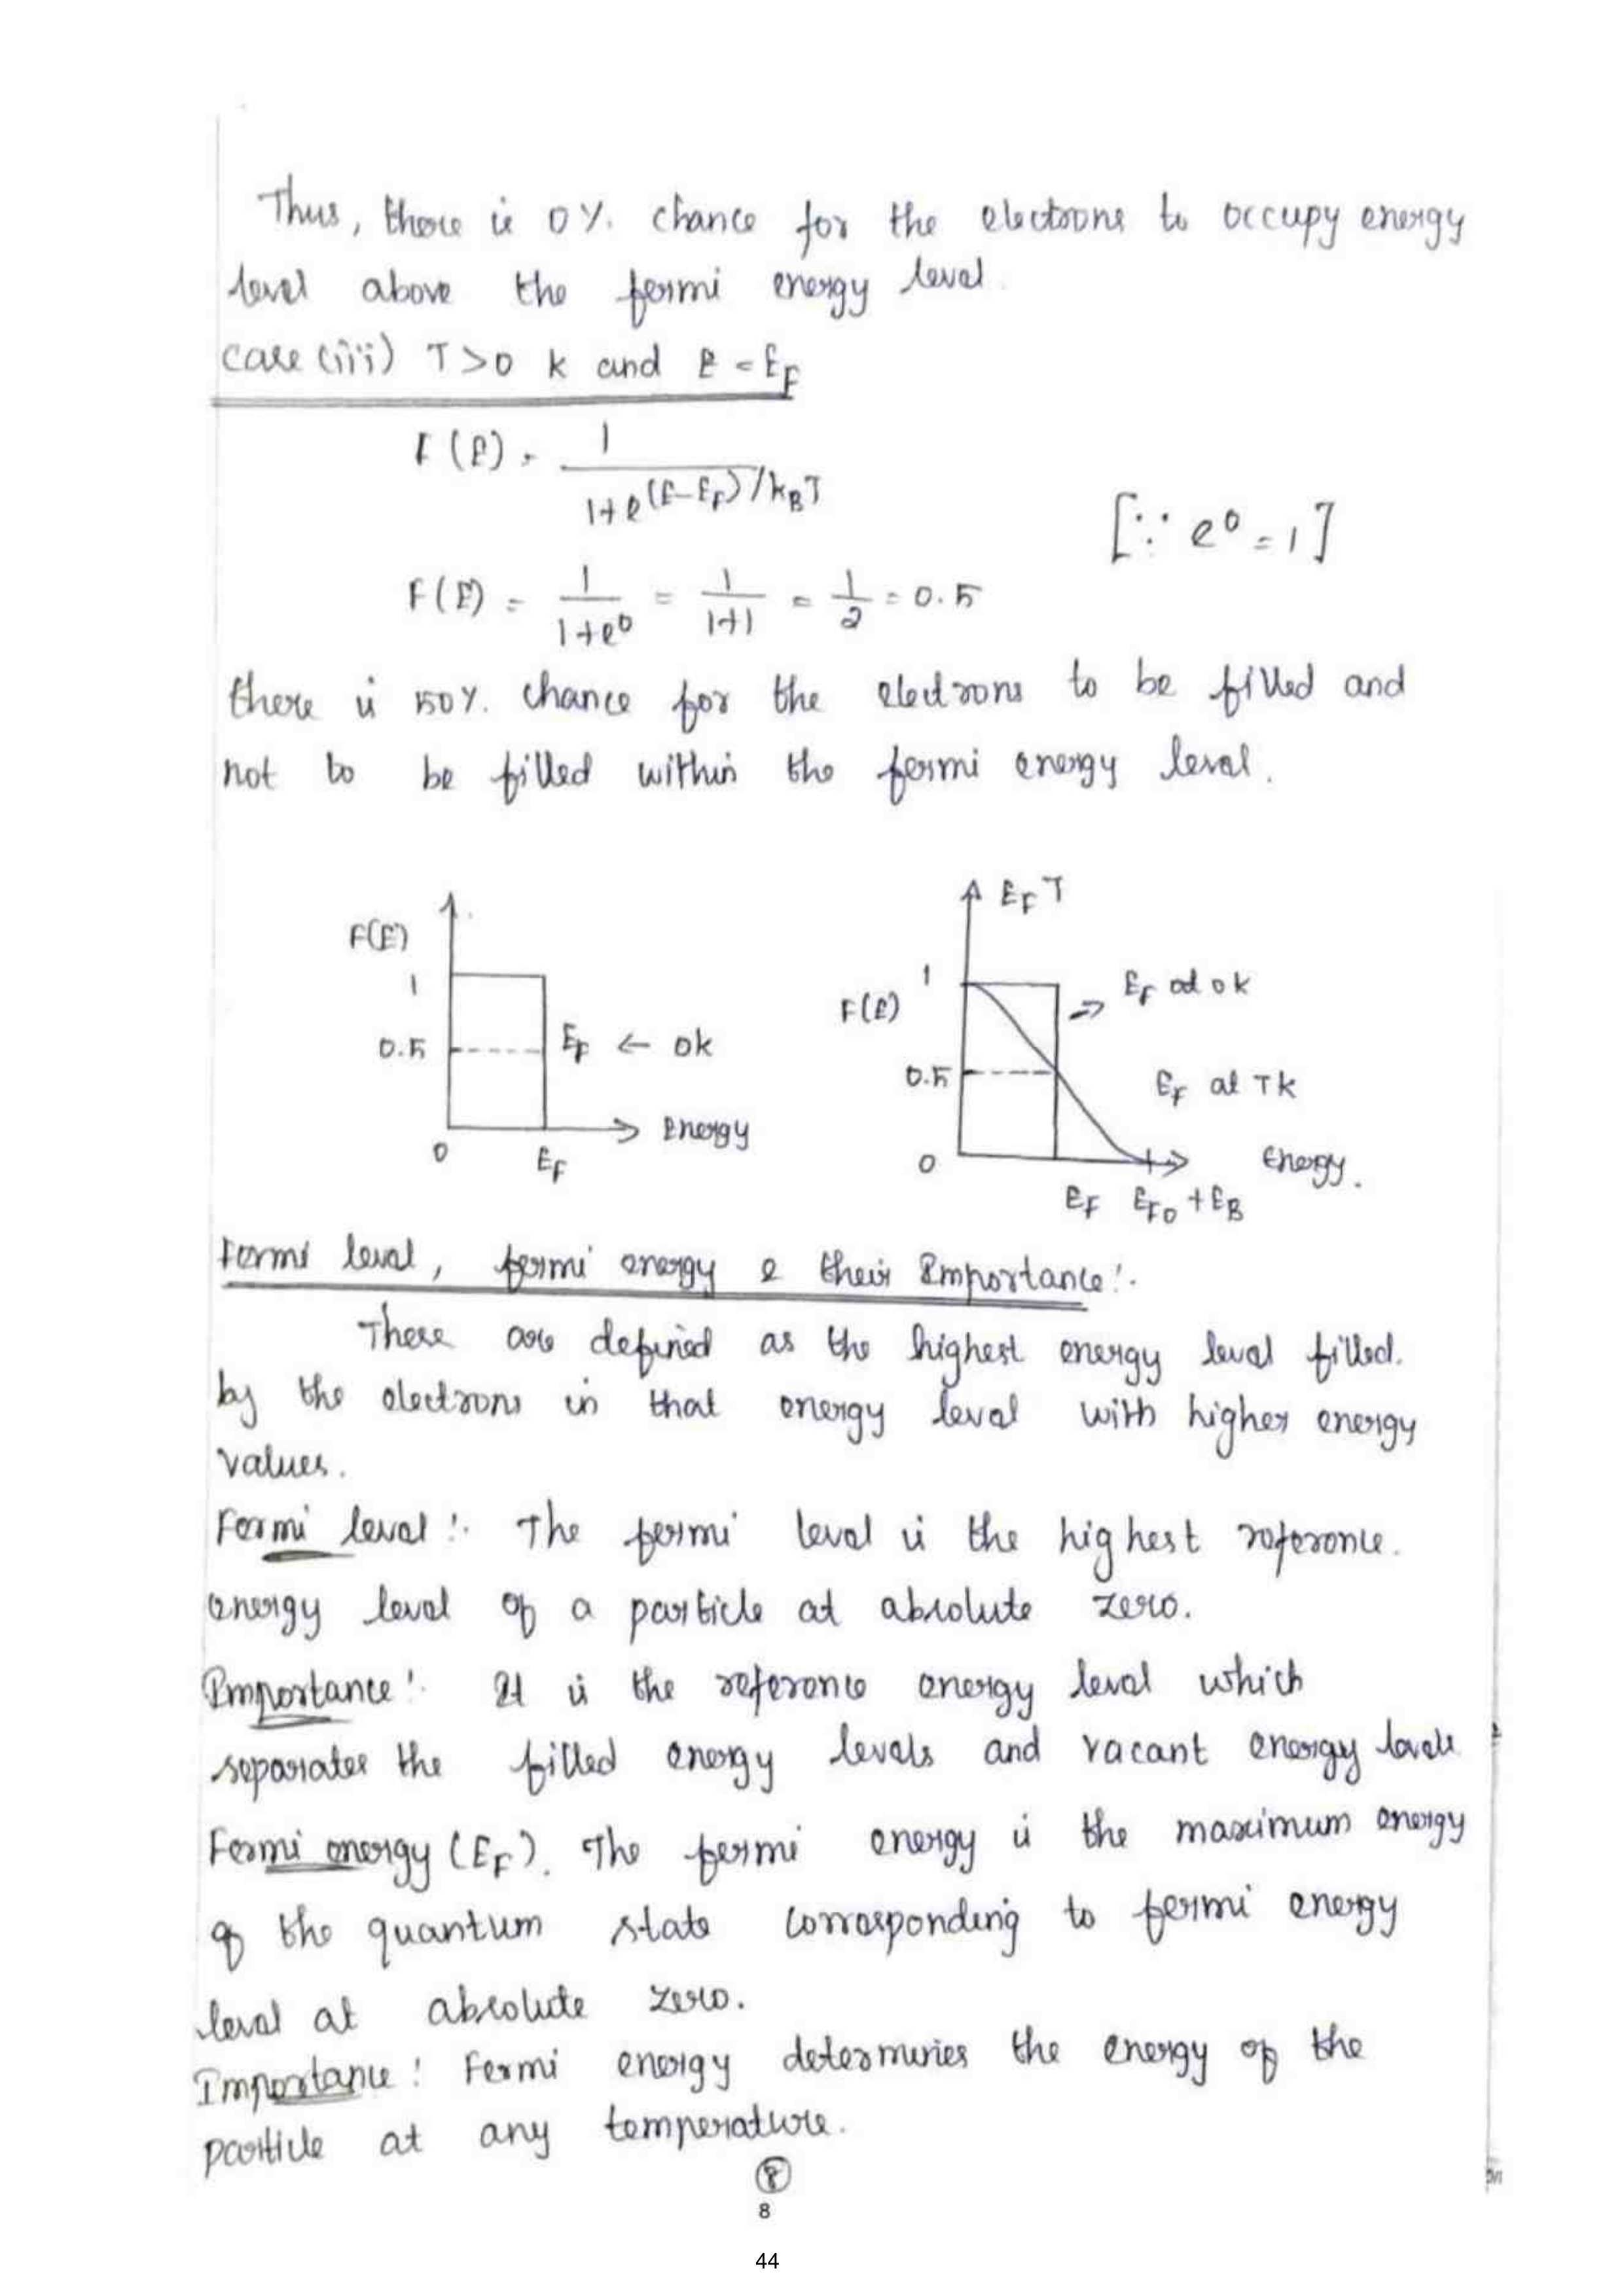 Thus, there is 0%. chance for the electrons to occupy energy
level above the fermi energy level.
case (iii) T>0 k and E = E_F
F(E) = 1 / 1+e^(E-E_F)/k_BT
[∵ e^0 = 1]
F(E) = 1/1+e^0 = 1/1+1 = 1/2 = 0.5
there is 50%. chance for the electrons to be filled and
not to be filled within the fermi energy level.
F(E)
1
0.5
E_F ← 0k
0
E_F
Energy
E_F T
1
F(E)
⇒ E_F at 0k
0.5
E_F at Tk
0
Energy.
E_F E_F0 + E_B
Fermi level, fermi energy & their Importance:-
These are defined as the highest energy level filled.
by the electrons in that energy level with higher energy
values.
Fermi level:- The fermi level is the highest reference.
energy level of a particle at absolute zero.
Importance:- It is the reference energy level which
separates the filled energy levels and vacant energy levels
Fermi energy (E_F). The fermi energy is the maximum energy
of the quantum state corresponding to fermi energy
level at absolute zero.
Importance: Fermi energy determines the energy of the
particle at any temperature.
8
8
44